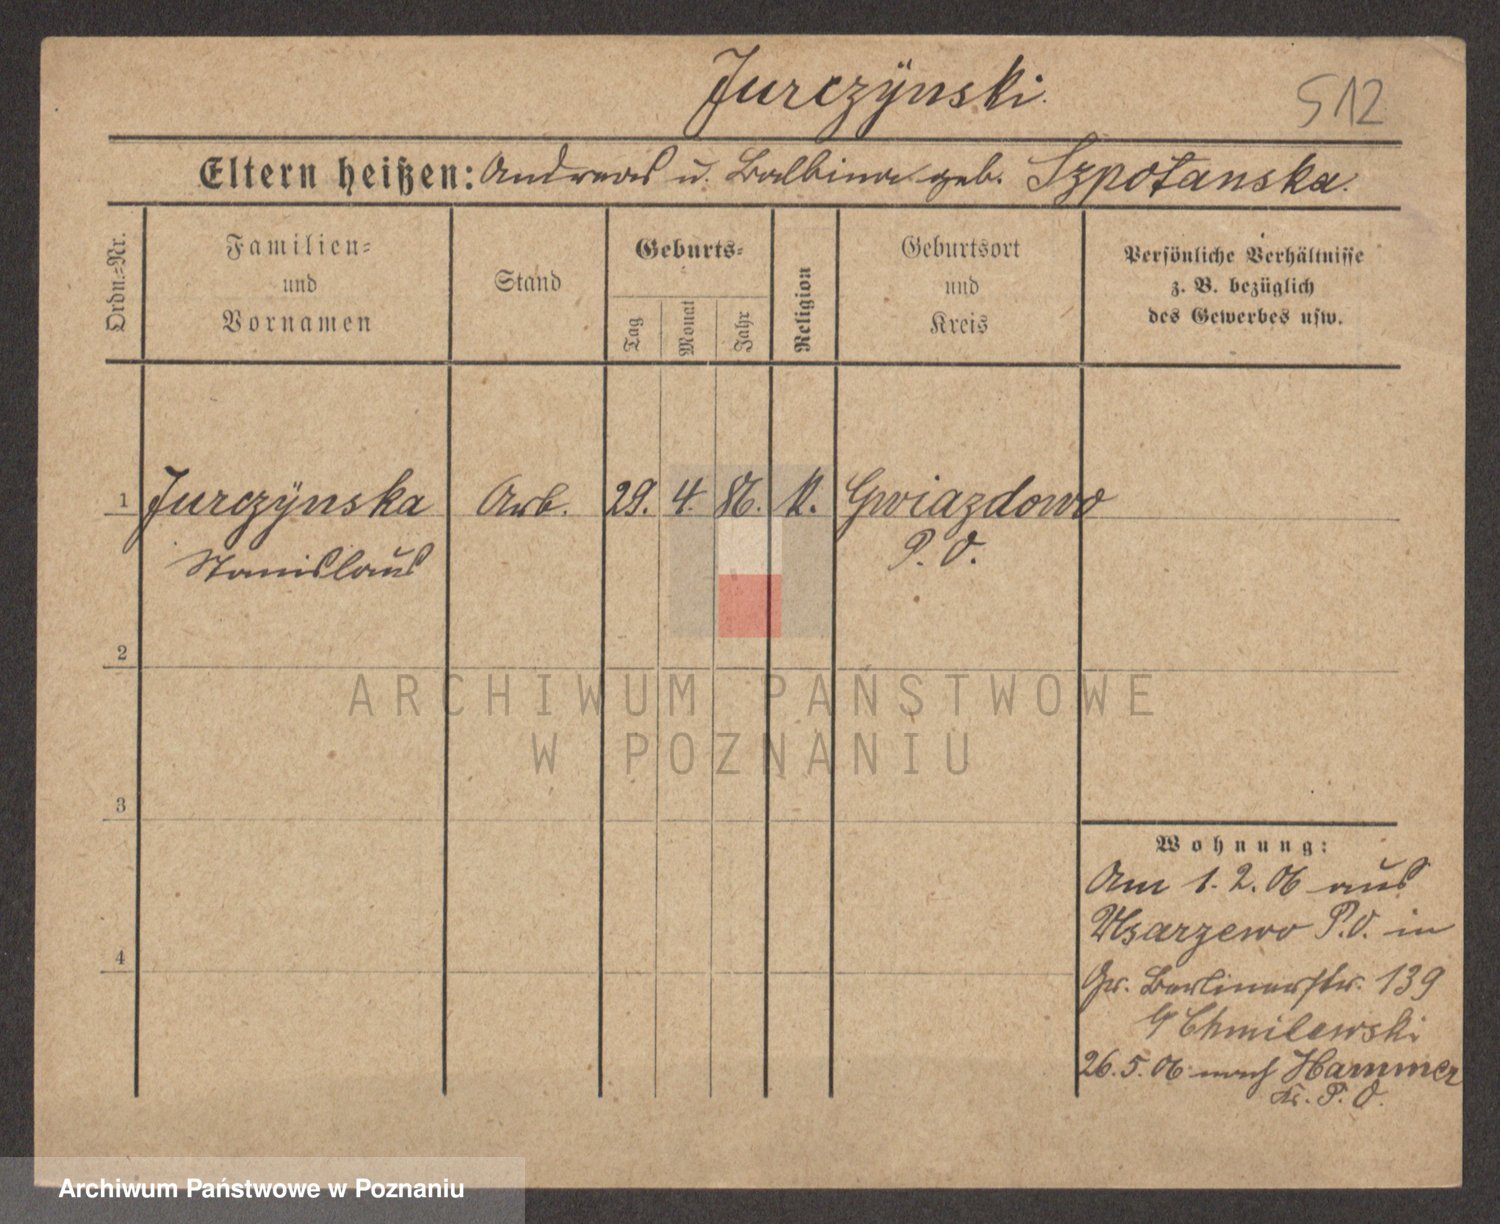 Jurczÿnski.
512
Eltern heißen: Andreas u. Balbina geb. Szpotanska.
Ordn.-Nr.
Familien-
und
Vornamen
Stand
Geburts-
Tag
Monat
Jahr
Religion
Geburtsort
und
Kreis
Persönliche Verhältnisse
z. B. bezüglich
des Gewerbes usw.
1 Jurczÿnska Arb. 29. 4. 86. K. Gwiazdowo
Stanislaus P. O.
2
ARCHIWUM PAŃSTWOWE
W POZNANIU
3
Wohnung:
Am 1. 2. 06 aus
Usarzewo P. O. in
4
Gr. Berlinerstr. 139
Chmilewski
26. 5. 06 nach Hammer
Kr. P. O.
Archiwum Państwowe w Poznaniu